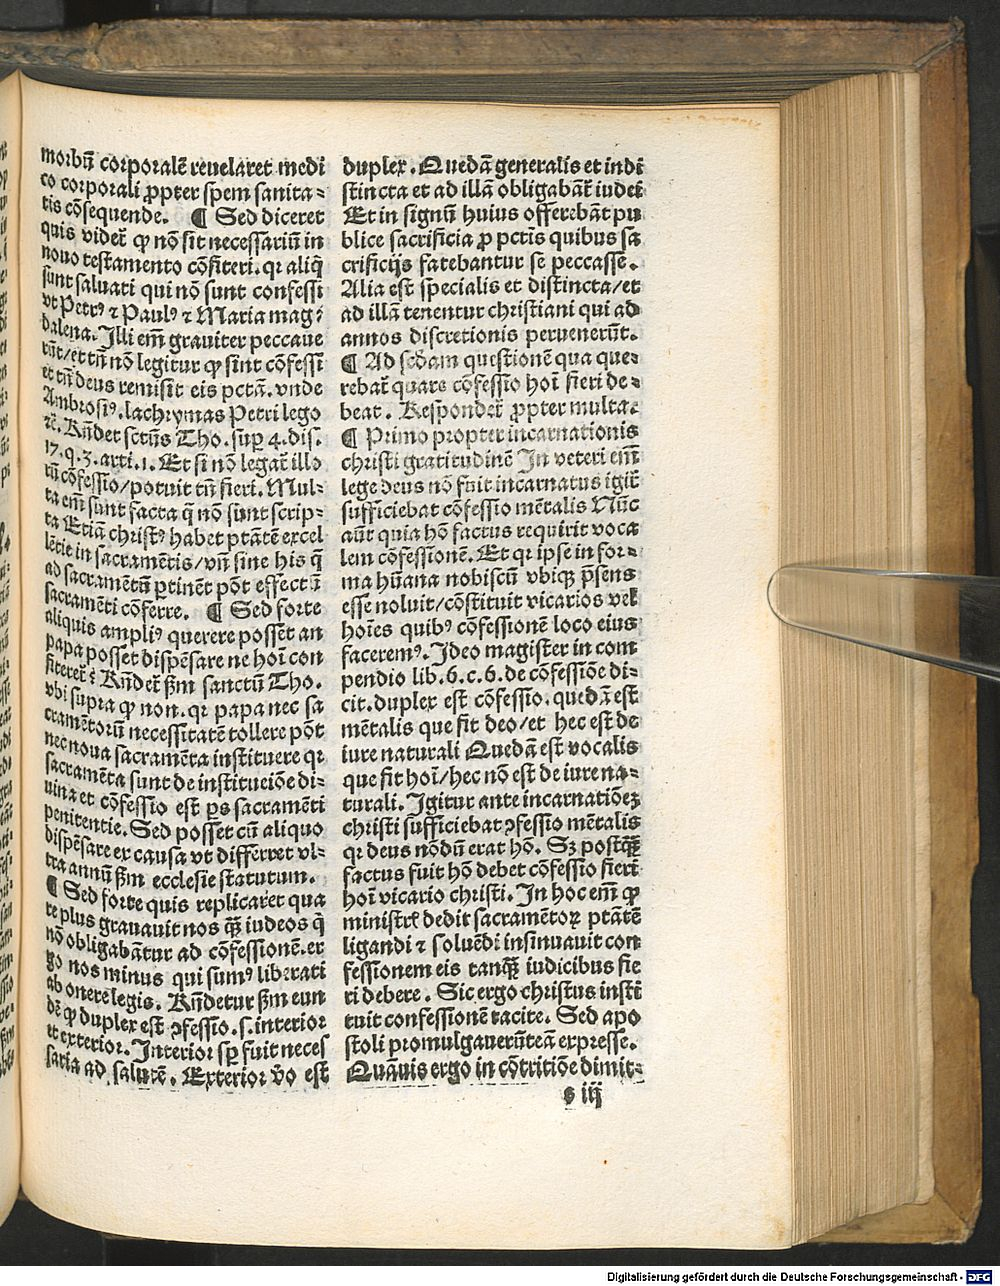 morbū corporalē reuelaret medi
co corporali ꝓpter spem sanita⸗
tis cōsequende. ¶ Sed diceret
quis videt̄ ꝙ nō sit necessariū in
nouo testamento cōfiteri. qꝛ aliq̄
sunt saluati qui nō sunt confessi
vt Petrꝰ ⁊ Paulꝰ ⁊ Maria mag⸗
dalena. Illi em̄ grauiter peccaue
rūt/et tn̄ nō legitur ꝙ sint cōfessi
et tn̄ deus remisit eis pctā. vnde
Ambrosiꝰ. lachrymas Petri lego
⁊c̄. Rn̄det sctūs Tho. suꝑ 4. dis.
17. q. 3. arti. 1. Et si nō legat̄ illo
ꝝ cōfessio/potuit tn̄ fieri. Mul⸗
ta em̄ sunt facta q̄ nō sunt scrip⸗
ta Etiā christꝰ habet ptātē excel
lētie in sacramētis/vn̄ sine his q̄
ad sacramētū ꝑtinēt pōt effectū
sacramēti cōferre. ¶ Sed forte
aliquis ampliꝰ querere possēt an
papa posset dispēsare ne hoī con
fiteret̄ꝛ Rn̄det̄ ẜm sanctū Tho.
vbi supra ꝙ non. qꝛ papa nec sa
cramētorū necessitatē tollere pōt
nec noua sacramēta instituere qꝛ
sacramēta sunt de institucōe di⸗
uina et cōfessio est ꝑs sacramēti
penitentie. Sed posset cū aliquo
dispēsare ex causa vt differret vl⸗
tra annū ẜm ecclesie statutum.
¶ Sed forte quis replicaret qua
re plus grauauit nos qꝫ̄ iudeos q̄
nō obligabātur ad cōfessionē. er
go nos minus qui sumꝰ liberati
ab onere legis. Rn̄detur ẜm eun
dē ꝙ duplex est ꝯfessio. s. interior
et exterior. Interior sꝑ fuit neces
saria ad salutē. Exterior v̄o est
duplex. Quedā generalis et indi
stincta et ad illā obligabāt̄ iudei
Et in signū huius offerebāt pu
blice sacrificia ꝓ pctis quibus sa
crificijs fatebantur se peccasse.
Alia est specialis et distincta/et
ad illā tenentur christiani qui ad
annos discretionis peruenerūt.
¶ Ad scd̄am questionē qua que⸗
rebat̄ quare cōfessio hoī fieri de⸗
beat. Respondet̄ ꝓpter multa.
¶ Primo propter incarnationis
christi gratitudinē In veteri em̄
lege deus nō fuit incarnatus igit̄
sufficiebat cōfessio mētalis Nūc
aūt quia hō factus requirit voca
lem cōfessionē. Et qꝛ ipse in for⸗
ma hūana nobiscū vbiqꝫ p̄sens
esse noluit/cōstituit vicarios vel
hoīes quibꝰ cōfessionē loco eius
faceremꝰ. Ideo magister in com
pendio lib. 6. c. 6. de cōfessiōe di⸗
cit. duplex est cōfessio. quedā est
mētalis que fit deo/et hec est de
iure naturali Quedā est vocalis
que fit hoī/hec nō est de iure na⸗
turali. Igitur ante incarnatiōeꝫ
christi sufficiebat ꝯfessio mētalis
qꝛ deus nōdū erat hō. Sꝫ postqꝫ̄
factus fuit hō debet cōfessio fieri
hoī vicario christi. In hoc em̄ ꝙ
ministrꝭ dedit sacramētoꝝ ptātē
ligandi ⁊ soluēdi insinuauit con
fessionem eis tanqꝫ̄ iudicibus fie
ri debere. Sic ergo christus insti
tuit confessionē tacite. Sed apo
stoli promulgauerūt eā expresse.
Quāuis ergo in cōtritiōe dimit⸗
s iij
Digitalisierung gefördert durch die Deutsche Forschungsgemeinschaft - DFG